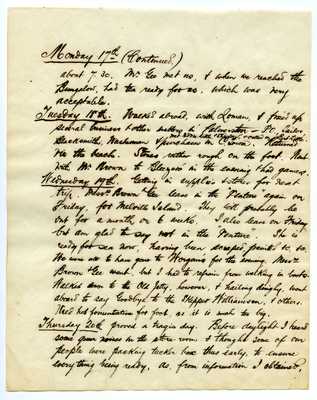 Monday 17th (Continued)
about 7.30. Mr. Gee met us, & when we reached the
Bungalow, had tea ready for us, which was very
acceptable.
Tuesday 18th. Walked abroad, with Loman, & fixed up
several business & other matters in Palmerston — P.O., Tailor,
Blacksmith, Washman & purchases in C'town. Returned
via the beach. Stones rather rough on the feet. Went
with Mr. Brown to in the evening had games.
Wednesday 19th. Getting in supplies & stores for next
trip. Messrs Brown & Gee leave in the Venture again on
Friday, for Melville Island. They will probably be
out for a month, or 6 weeks. I also leave on Friday
but am glad to say not in the "Venture". She is
ready for sea now, having been scraped, painted &c. &c.
We were all to have gone to for the evening. Messrs
Brown & Gee went, but I had to refrain from walking in boots.
Walked down to the Old Jetty, however, & hailing dinghy, went
aboard to say Goodbye to the Skipper Williamson, & others.
Tried hot fomentation for foot, as it is much too big.
Thursday 20th proved a tragic day. Before daylight I heard
some queer noises in the store room & thought some of our
people were packing tucker box thus early, to ensure
everything being ready, as, from information I obtained,